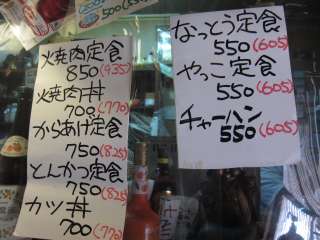 火焼肉定食
850(935)
火焼肉丼
700(770)
からあげ定食
750(825)
とんかつ定食
750(825)
カツ丼
700(770)
なっとう定食
550(605)
やっこ定食
550(605)
チャーハン
550(605)